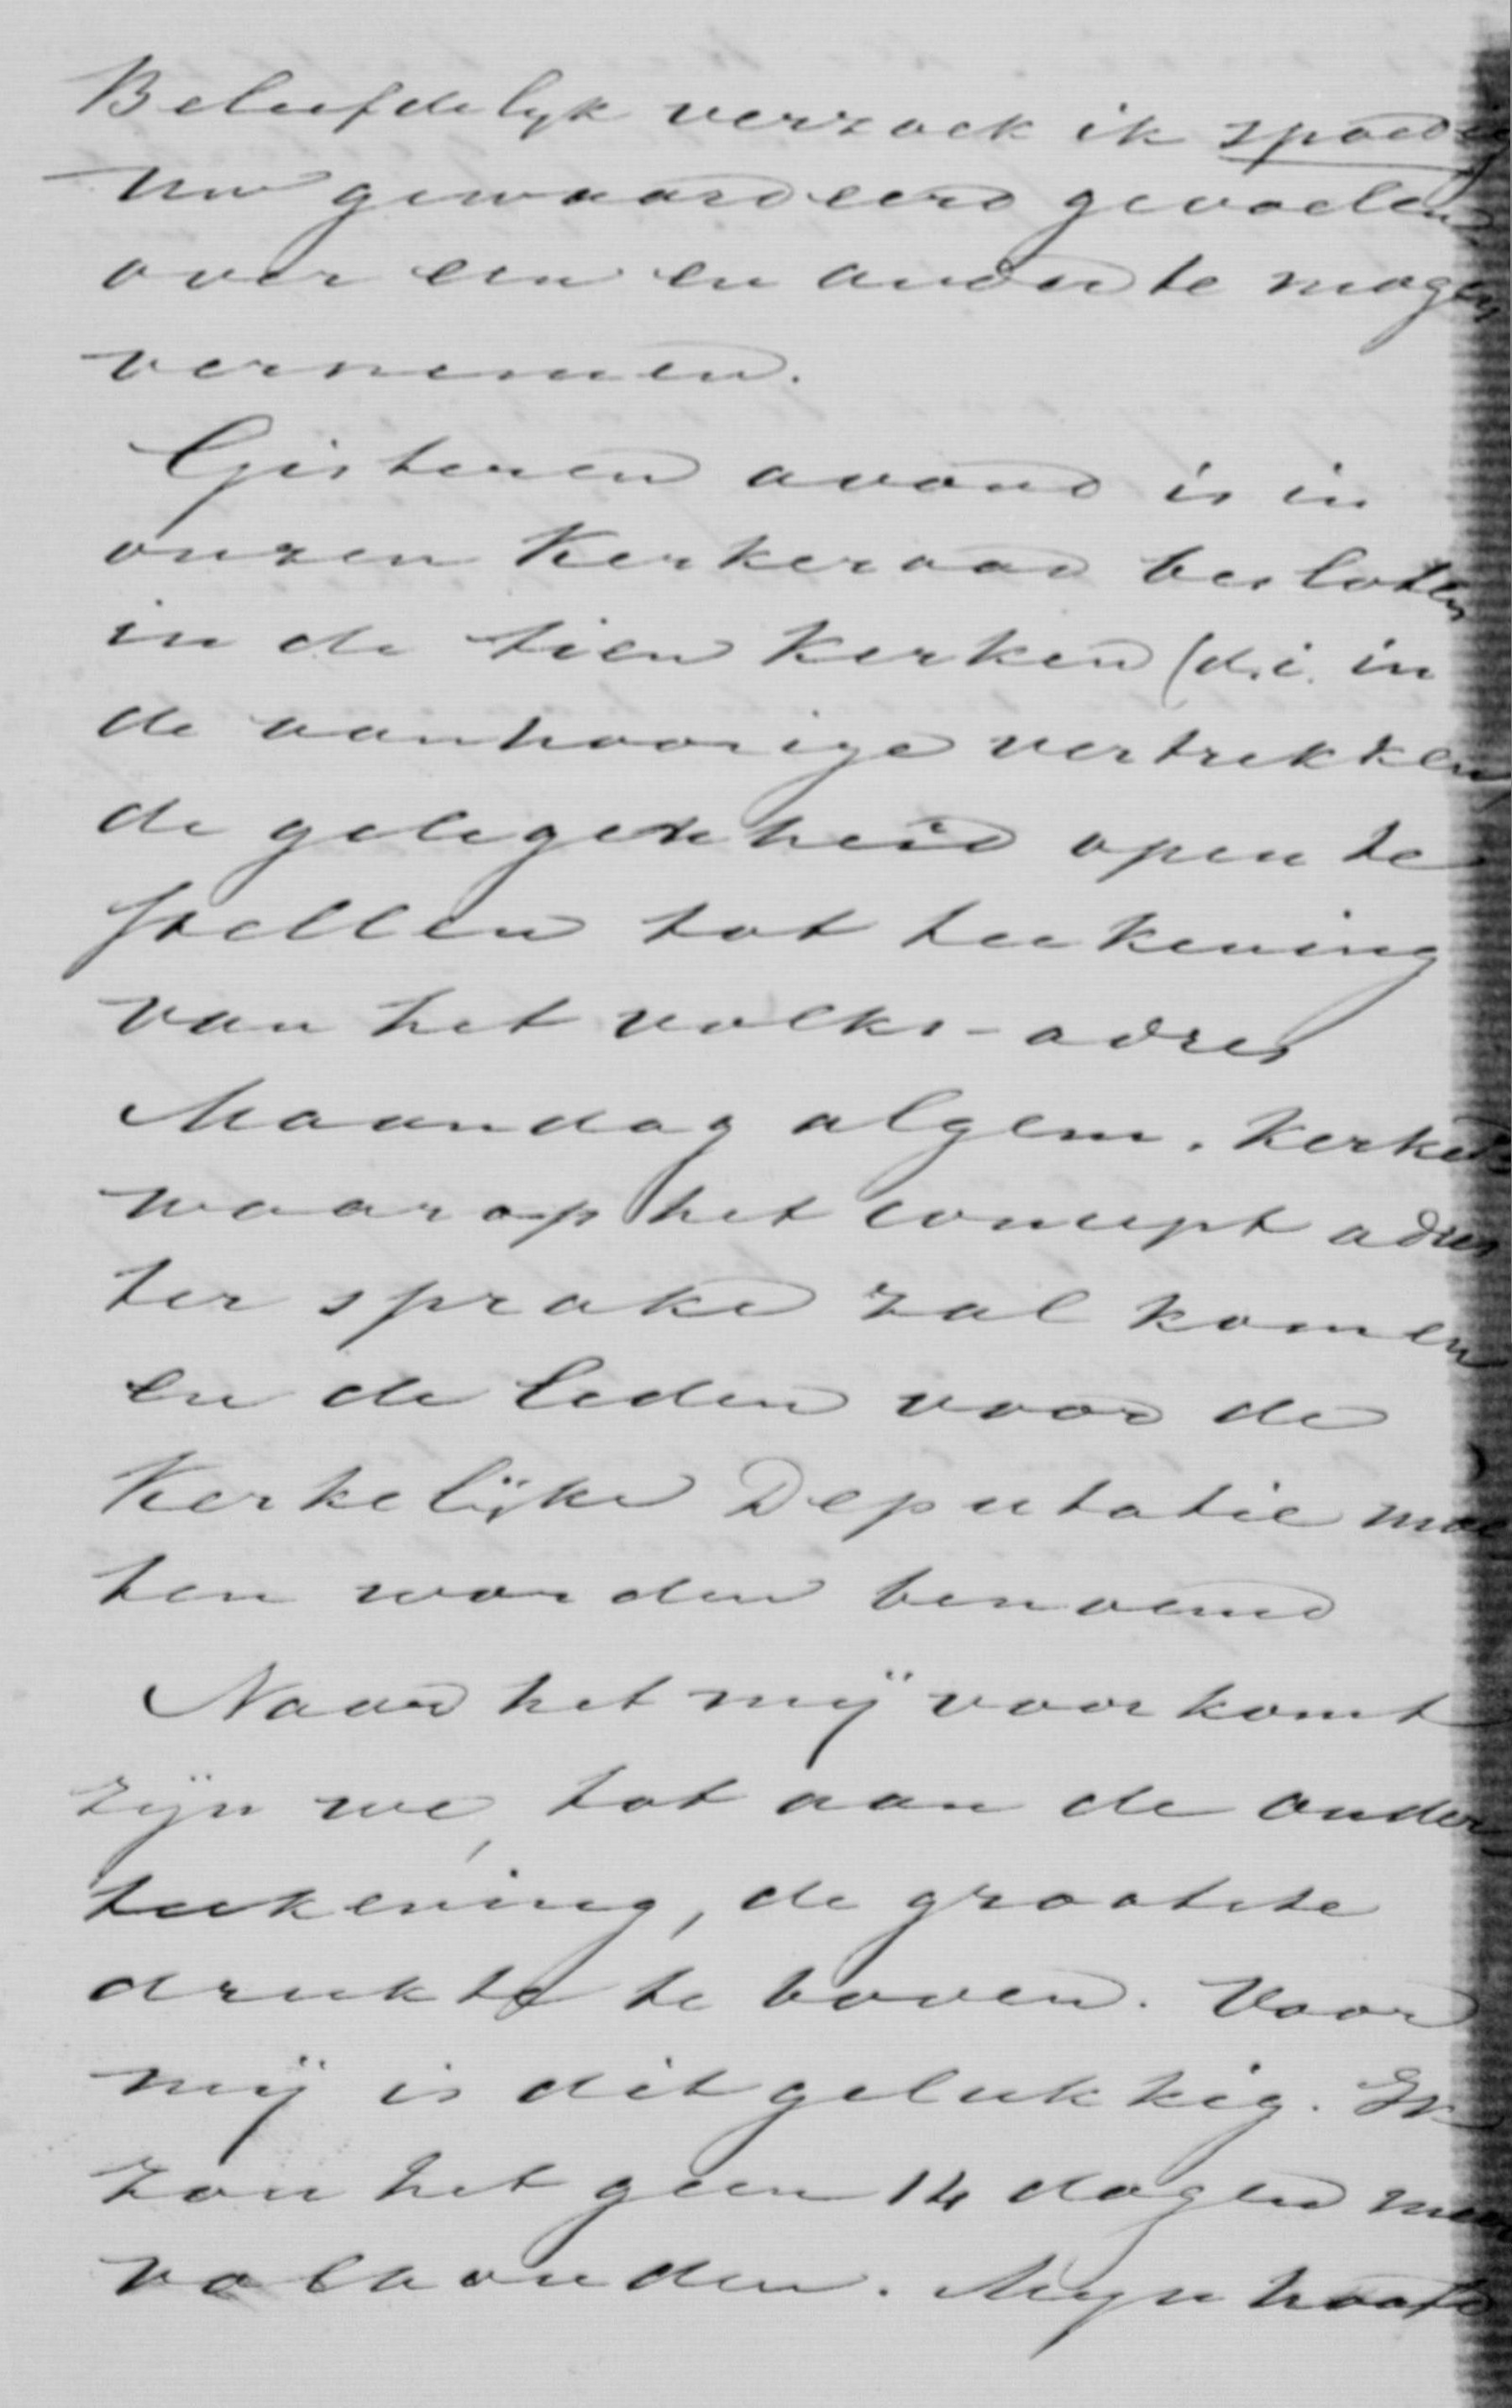 Beleefdelyk verzoek ik spoedig
uw gewaardeerd gevoelen
over een en ander te mogen
vernemen.
Gisteren avond is in
onzen Kerkeraad besloten
in de tien Kerken (d.i. in
de aanhoorige vertrekken)
de gelegenheid open te
stellen tot teekening
van het volks-adres
Maandag algem. Kerker
waarop het concept adres
ter sprake zal komen
en de leden voor de
Kerkelijke Deputatie moe
ten worden benoemd
Naar het mij voorkomt
zijn we, tot aan de onder
teekening, de grootste
drukte te boven. Voor
mij is dit gelukkig. Ik
zou het geen 14 dagen meer
volhouden. Myn hoofd